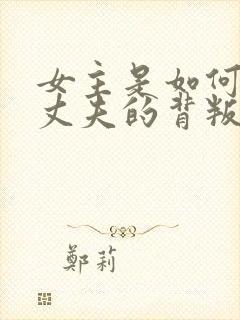 女主是如何
丈夫的背叛
鄭莉